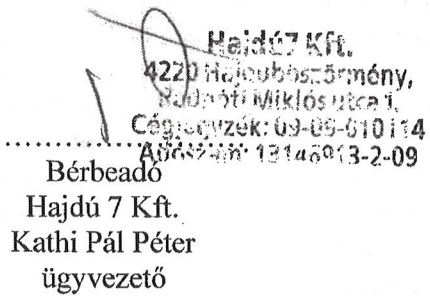 Hajdú7 Kft.
4220 Hajdúböszörmény,
Radnóti Miklós utca 1.
Cégjegyzék: 09-09-010114
Adószám: 13146913-2-09
Bérbeadó
Hajdú 7 Kft.
Kathi Pál Péter
ügyvezető